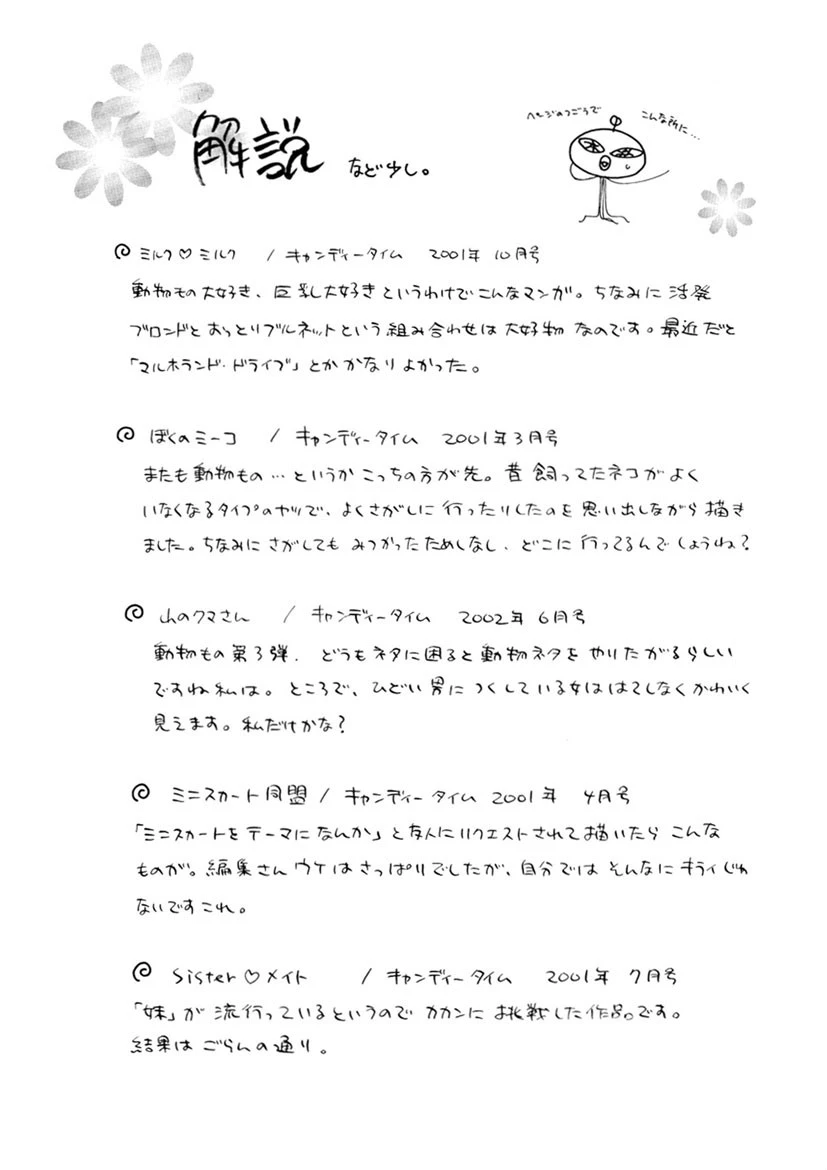 解説 など少し。
ページのつごうで
こんな所に…
ミルク♡ミルク / キャンディータイム 2001年 10月号
動物もの大好き、巨乳大好きというわけでこんなマンガ。ちなみに 活発
ブロンドと おっとりブルネットという組み合わせは 大好物 なのです。最近だと
「マルホランド・ドライブ」とか かなりよかった。
ぼくのミーコ / キャンディータイム 2001年3月号
またも動物もの…というか こっちの方が先。昔 飼ってたネコが よく
いなくなるタイプのヤツで、よくさがしに 行ったりしたのを 思い出しながら 描き
ました。ちなみに さがしても みつかったためしなし、どこに 行ってるんでしょうね?
山のクマさん / キャンディータイム 2002年 6月号
動物もの 第3弾. どうもネタに困ると動物ネタを やりたがるらしい
ですね 私は。ところで、ひどい男に つくしている女は はてしなく かわいく
見えます。私だけかな?
ミニスカート同盟 / キャンディータイム 2001年 4月号
「ミニスカートを テーマに なんか」と 友人に リクエストされて 描いたら こんな
ものが。編集さん ウケは さっぱりでしたが、自分では そんなに キライじゃ
ないです これ。
Sister♡メイト / キャンディータイム 2001年 7月号
「妹」が 流行っているというので カカンに 挑戦した作品です。
結果は ごらんの通り。